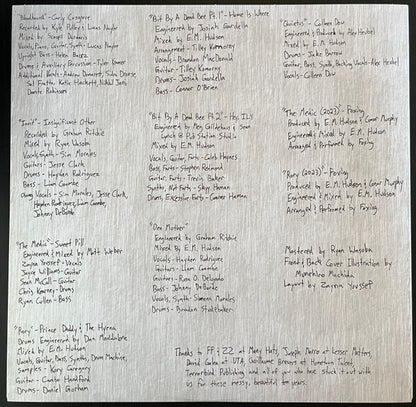 "Bloodhound" - Carly Cosgrove
Recorded by Kyle Pulley & Lucas Naylor
Mixed by
Vocals, Piano, Guitar, Synth - Lucas Naylor
Upright Bass - Helen
Drums & Auxiliary Percussion - Tyler Kramer
Additional Vocals - Andrew
Sal Fratto, Katie Hackett, Nikki
Dante Robinson
"Inuit" - Insignificant Other
Recorded by Graham Ritchie
Mixed by Ryan Wasoba
Vocals, Synth - Sim Morales
Guitars - Jesse Clark
Drums - Hayden Rodriguez
Bass - Liam Coombe
Gang Vocals - Sim Morales, Jesse Clark,
Hayden Rodriguez, Liam Coombe,
Johnny
"The Medic" - Sweet Pill
Engineered & Mixed by Matt Weber
Zayna Youssef - Vocals
Jayce Williams - Guitar
Sean McCall - Guitar
Chris Kearney - Drums
Ryan Cullen - Bass
"Rory" - Prince Daddy & The Hyena
Drums Engineered by Dan
Mixed by E.M. Hudson
Vocals, Guitar, Bass, Synths, Drum Machine,
Samples - Kory Gregory
Guitar - Cameron Handford
Drums - Daniel Gorham
"Bit By A Dead Bee Pt. 1" - Home Is Where
Engineered by Josiah Gardella
Mixed by E.M. Hudson
Arrangement - Tilley Komorny
Vocals - Brandon MacDonald
Guitar - Tilley Komorny
Drums - Josiah Gardella
Bass - Connor O'Brien
"Bit By A Dead Bee Pt. 2" - Hey, ILY
Engineered by
@ Pub Station Studio
Mixed by E.M. Hudson
Vocals, Guitar, Farts - Caleb Haynes
Bass, Farts - Stephen Redmond
Guitar, Farts - Trevin Baker
Synths, Not Farts - Skyy Haman
Drums, Farts - Conner Haman
"Dea Mother"
Engineered by Graham Ritchie
Mixed by E.M. Hudson
Vocals - Hayden Rodriguez
Guitars - Liam Coombe
Guitars - Ross O. Delgado
Bass - Johnny
Vocals, Synth - Simona Morales
Drums - Brandon
"Quietus" - Colleen Dow
Engineered & Produced by Alex
Mixed by E.M. Hudson
Drums - Jake
Guitar, Bass, Synths, Backing Vocals - Alex
Vocals - Colleen Dow
"The Medic (2023)" - Foxing
Produced by E.M. Hudson & Conor Murphy
Engineered & Mixed by E.M. Hudson
Arranged & Performed by Foxing
"Rory (2023)" - Foxing
Produced by E.M. Hudson & Conor Murphy
Engineered & Mixed by E.M. Hudson
Arranged & Performed by Foxing
Mastered by Ryan Wasoba
Front & Back Cover Illustration by
Machida
Layout by Zayna Youssef
Thanks to FF & ZZ at Many Hats, Joseph Marro at Lesser Matters,
David Galea at UTA, Guillermo at Hometown Talent,
Terrorbird Publishing and all of you who have stuck it out with
us for these messy, beautiful ten years.